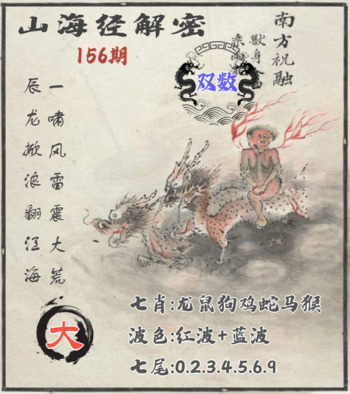 山海经解密
156期
南方祝融
兽身人面
乘两龙
双数
一啸风雷震大荒
辰龙掀浪翻江海
大
七肖:龙鼠狗鸡蛇马猴
波色:红波+蓝波
七尾:0.2.3.4.5.6.9